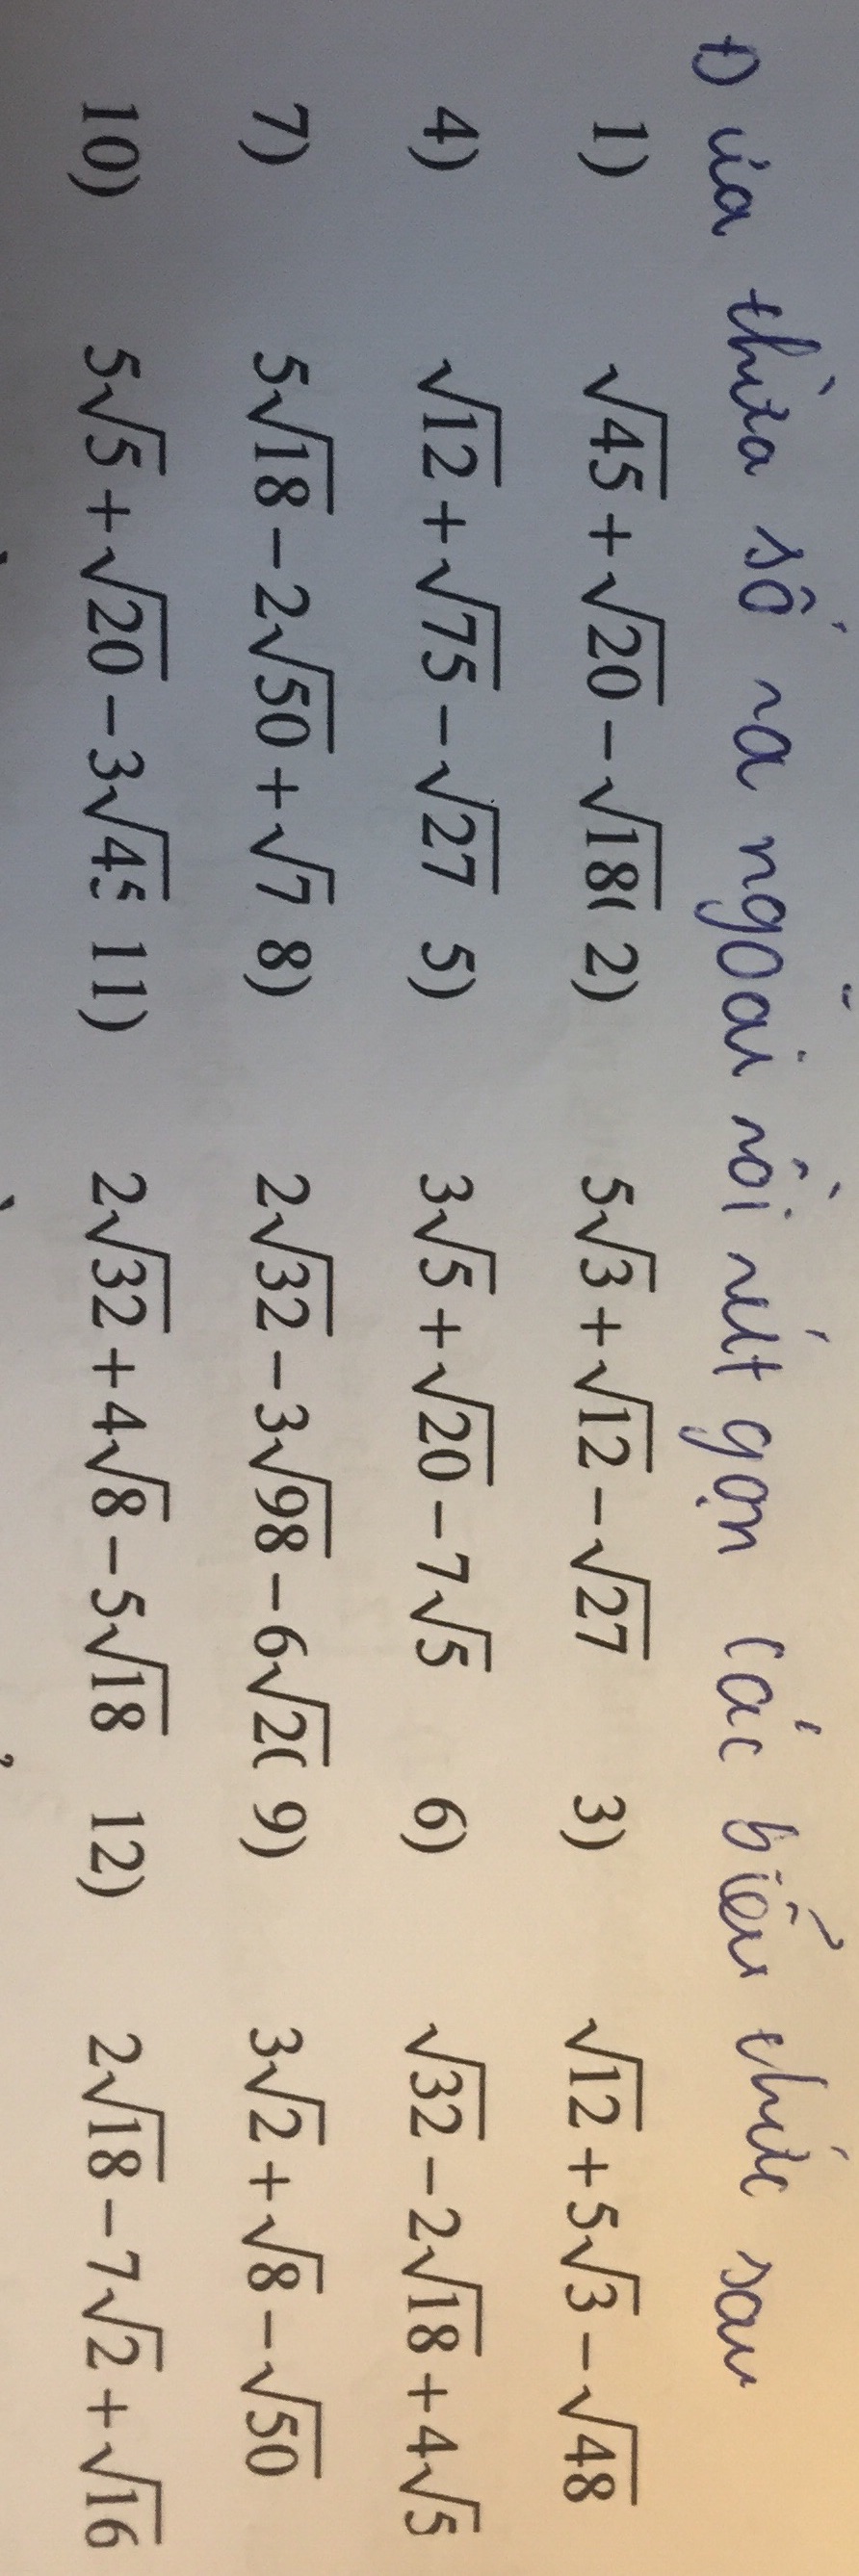 Đưa thừa số ra ngoài rồi rút gọn các biểu thức sau
1) √45 + √20 − √18( 2) 5√3 + √12 − √27 3) √12 + 5√3 − √48
4) √12 + √75 − √27 5) 3√5 + √20 − 7√5 6) √32 − 2√18 + 4√5
7) 5√18 − 2√50 + √7 8) 2√32 − 3√98 − 6√2( 9) 3√2 + √8 − √50
10) 5√5 + √20 − 3√45 11) 2√32 + 4√8 − 5√18 12) 2√18 − 7√2 + √16